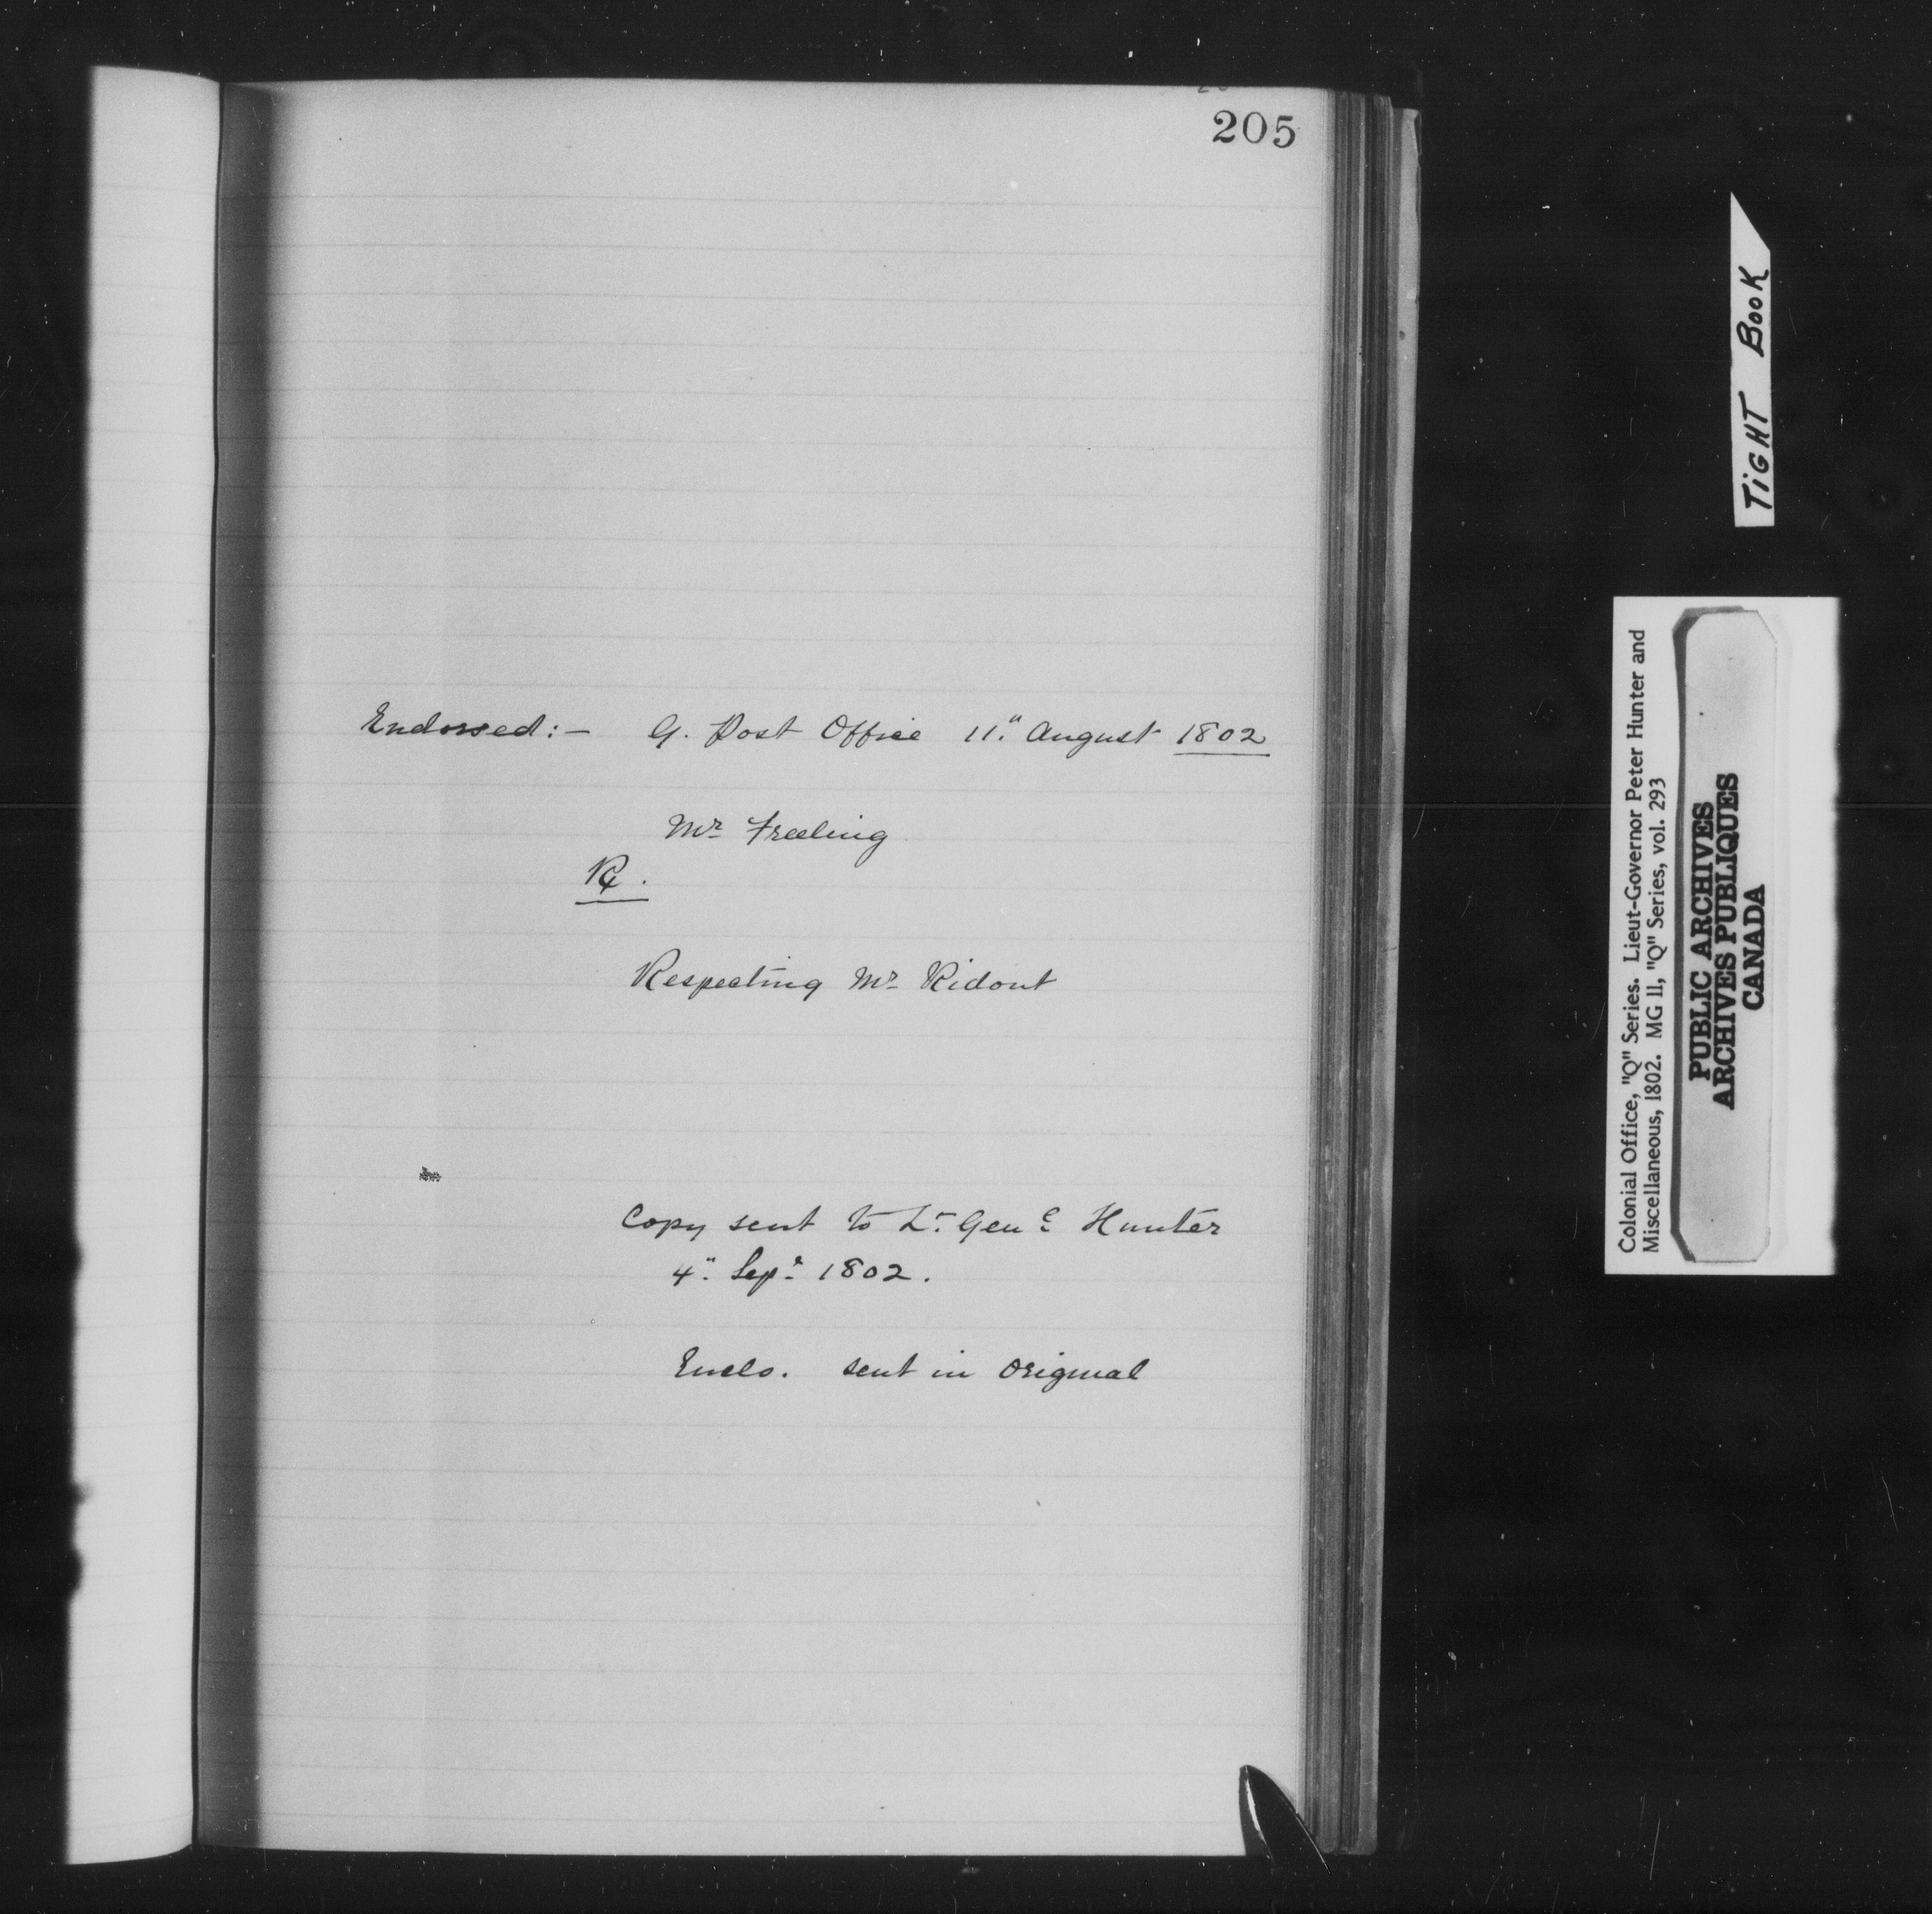 205
Endorsed:— G. Post Office 11." August 1802
Mr. Freeling
Rx.
Respecting Mr. Ridout
Copy sent to Lt. Genl. Hunter
4". Sepr. 1802.
Enclo. sent in Original
TiGHT BOOK
Colonial Office, "Q" Series. Lieut-Governor Peter Hunter and
Miscellaneous, 1802. MG 11, "Q" Series, vol. 293
PUBLIC ARCHIVES
ARCHIVES PUBLIQUES
CANADA